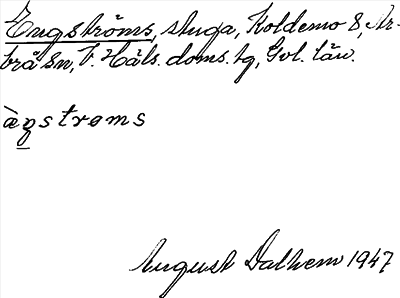 Engströms, stuga, Koldemo 8, Ar-
brå sn, V. Häls. doms. tg, Gvl. län.
àŋstrøms
August Dalhem 1947